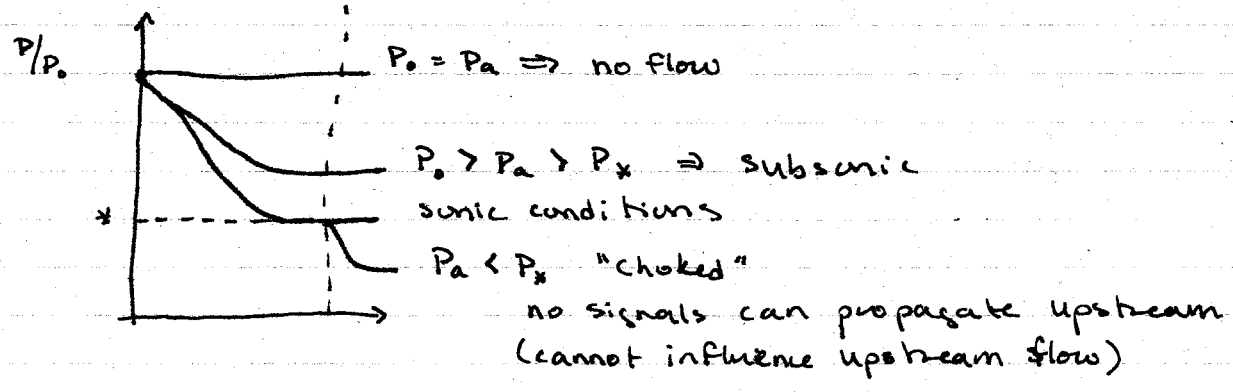 P/P₀
P₀ = Pa ⇒ no flow
P₀ > Pa > P* ⇒ subsonic
* sonic conditions
Pa < P* "choked"
no signals can propagate upstream
(cannot influence upstream flow)